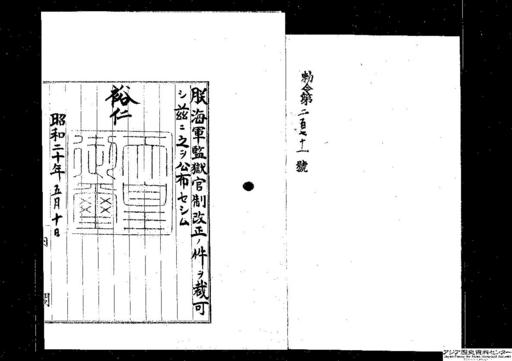 勅令第二百七十一號
朕海軍監獄官制改正ノ件ヲ裁可
シ茲ニ之ヲ公布セシム
裕仁
天皇御璽
昭和二十年五月十日
内閣
アジア歴史資料センター